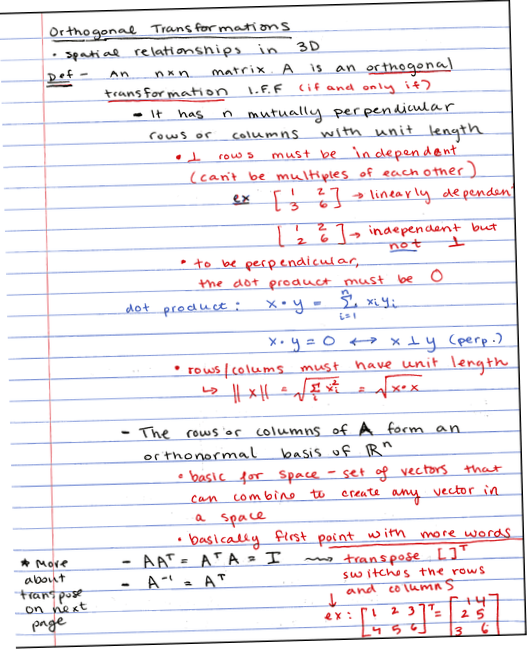 Orthogonal Transformations
• spatial relationships in 3D
Def - An nxn matrix A is an orthogonal
transformation I.F.F (if and only if)
- It has n mutually perpendicular
rows or columns with unit length
• ⊥ rows must be independent
(can't be multiples of each other)
ex [1 2
3 6] → linearly dependent
[1 2
2 6] → independent but
not ⊥
• to be perpendicular,
the dot product must be 0
dot product: x • y = n∑i=1 xiyi
x • y = 0 ↔ x ⊥ y (perp.)
• rows/colums must have unit length
↳ ||x|| = √∑i xi² = √x•x
- The rows or columns of A form an
orthonormal basis of ℝⁿ
• basic for space - set of vectors that
can combine to create any vector in
a space
• basically first point with more words
* More about transpose on next page
- AAᵀ = AᵀA = I ⟿ transpose [ ]ᵀ
- A⁻¹ = Aᵀ
switches the rows
↓ and columns
ex: [1 2 3
4 5 6]ᵀ = [1 4
2 5
3 6]